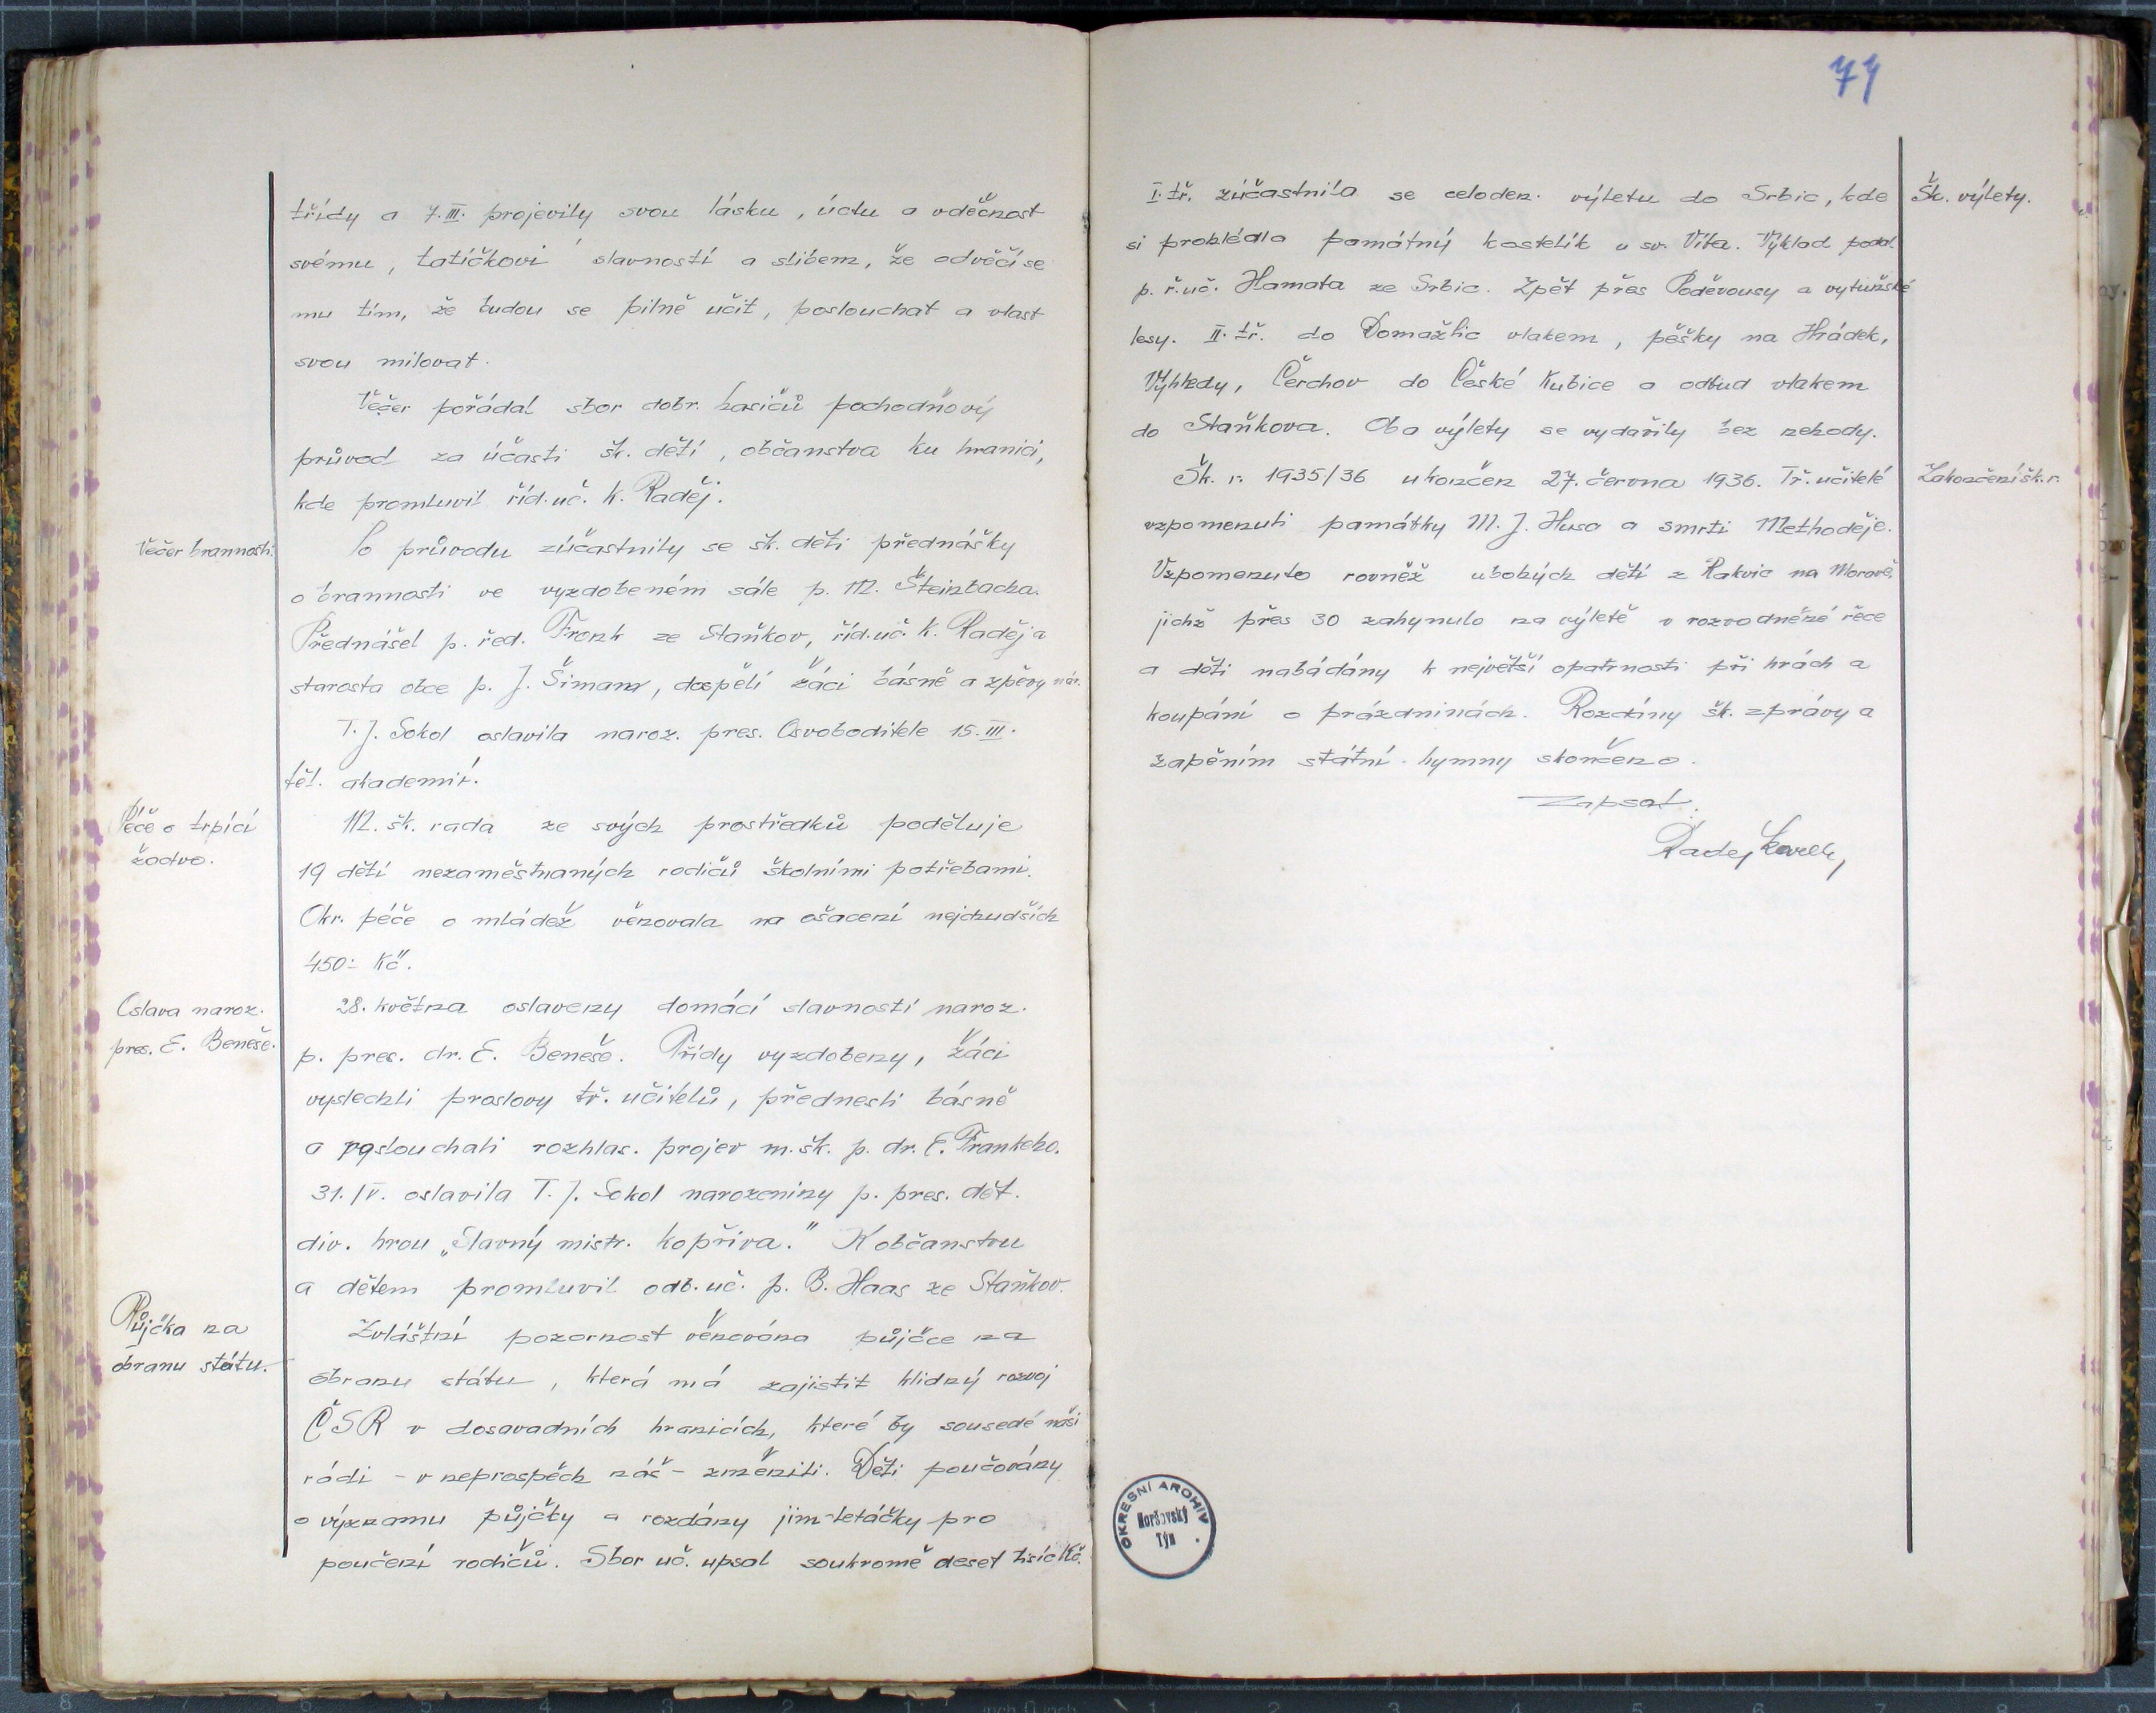 třídy a 7. III. projevily svou lásku, úctu a vděčnost
svému „tatíčkovi“ slavností a slibem, že odvděčí se
mu tím, že budou se pilně učit, poslouchat a vlast
svou milovat.
Večer pořádal sbor dobr. hasičů pochodňový
průvod za účasti šk. dětí, občanstva ku hranici,
kde promluvil říd. uč. K. Raděj.
Večer brannosti.
Po průvodu zúčastnily se šk. děti přednášky
o brannosti ve vyzdobeném sále p. M. Šteinbacha.
Přednášel p. řed. Frank ze Staňkov, říd. uč. K. Raděj a
starosta obce p. J. Šimanr, dospělí žáci básně a zpěvy nár.
T. J. Sokol oslavila naroz. pres. Osvoboditele 15. III.
těl. akademií.
Péče o trpící
žactvo.
M. šk. rada ze svých prostředků poděluje
19 dětí nezaměstnaných rodičů školními potřebami.
Okr. péče o mládež věnovala na ošacení nejchudších
450.- Kč.
Oslava naroz.
pres. E. Beneše.
28. května oslaveny domácí slavností naroz.
p. pres. dr. E. Beneše. Třídy vyzdobeny, žáci
vyslechli proslovy tř. učitelů, přednesli básně
a poslouchali rozhlas. projev m. šk. p. dr. E. Frankeho.
31. IV. oslavila T. J. Sokol narozeniny p. pres. dět.
div. hrou „Slavný mistr. Kopřiva.“ K občanstvu
a dětem promluvil odb. uč. p. B. Haas ze Staňkov.
Půjčka na
obranu státu.
Zvláštní pozornost věnována půjčce na
obranu státu, která má zajistit klidný rozvoj
ČSR v dosavadních hranicích, které by sousedé naši
rádi - v neprospěch náš - změnili. Děti poučovány
o významu půjčky a rozdány jim letáčky pro
poučení rodičů. Sbor uč. upsal soukromě deset tisíc Kč.
74
I. tř. zúčastnila se celoden. výletu do Srbic, kde
Šk. výlety.
si prohlédla památný kostelík u sv. Víta. Výklad podal
p. ř. uč. Hamata ze Srbic. Zpět přes Poděvousy a vytuňské
lesy. II. tř. do Domažlic vlakem, pěšky na Hrádek,
Výhledy, Čerchov do České Kubice a odtud vlakem
do Staňkova. Oba výlety se vydařily bez nehody.
Šk. r. 1935/36 ukončen 27. června 1936. Tř. učitelé
Zakončení šk. r.
vzpomenuli památky M. J. Husa a smrti Methoděje.
Vzpomenuto rovněž ubohých dětí z Rakvic na Moravě,
jichž přes 30 zahynulo na výletě v rozvodněné řece
a děti nabádány k největší opatrnosti při hrách a
koupání o prázdninách. Rozdány šk. zprávy a
zapěním státní hymny skončeno.
Zapsal.
Raděj Karel,
OKRESNÍ ARCHIV
Horšovský
Týn